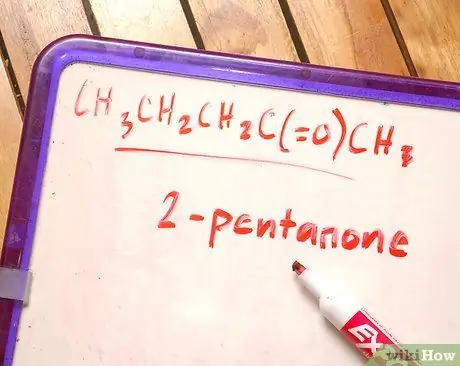 CH₃CH₂CH₂C(=O)CH₃
2-pentanone
EX
wikiHow